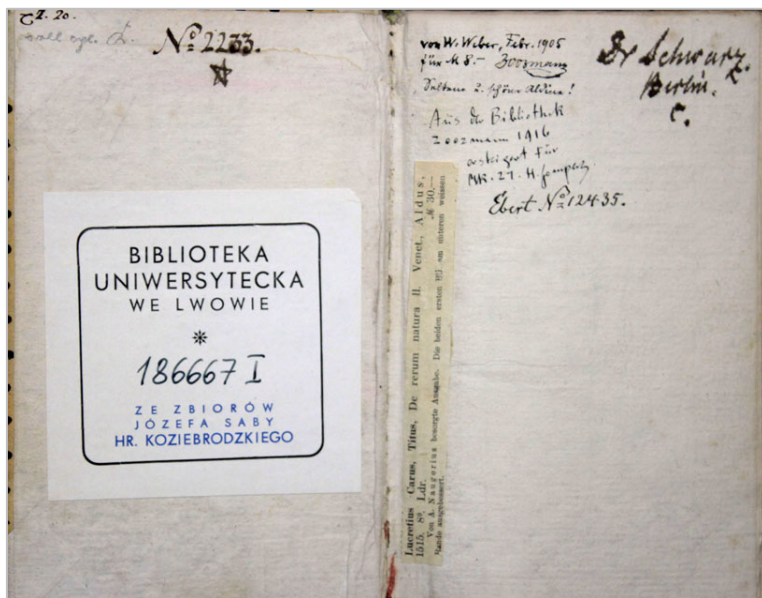 Z. 20.
coll. cpl.
Nº 2233.
BIBLIOTEKA
UNIWERSYTECKA
WE LWOWIE
186667 I
ZE ZBIORÓW
JÓZEFA SABY
HR. KOZIEBRODZKIEGO
von W. Weber, Febr. 1905
für M 8.- Zoozmann
Seltene u. schöne Aldine!
Aus der Bibliothek
Zoozmann 1916
ersteigert für
Mk. 27. H.
Ebert Nº 12435.
Dr Schwarz.
Berlin.
C.
Lucretius Carus, Titus, De rerum natura ll. Venet., Aldus,
1515. 8º. Ldr. ℳ 30,—
Von A. Naugerius besorgte Ausgabe. Die beiden ersten Bll. am unteren weissen
Rande ausgebessert.